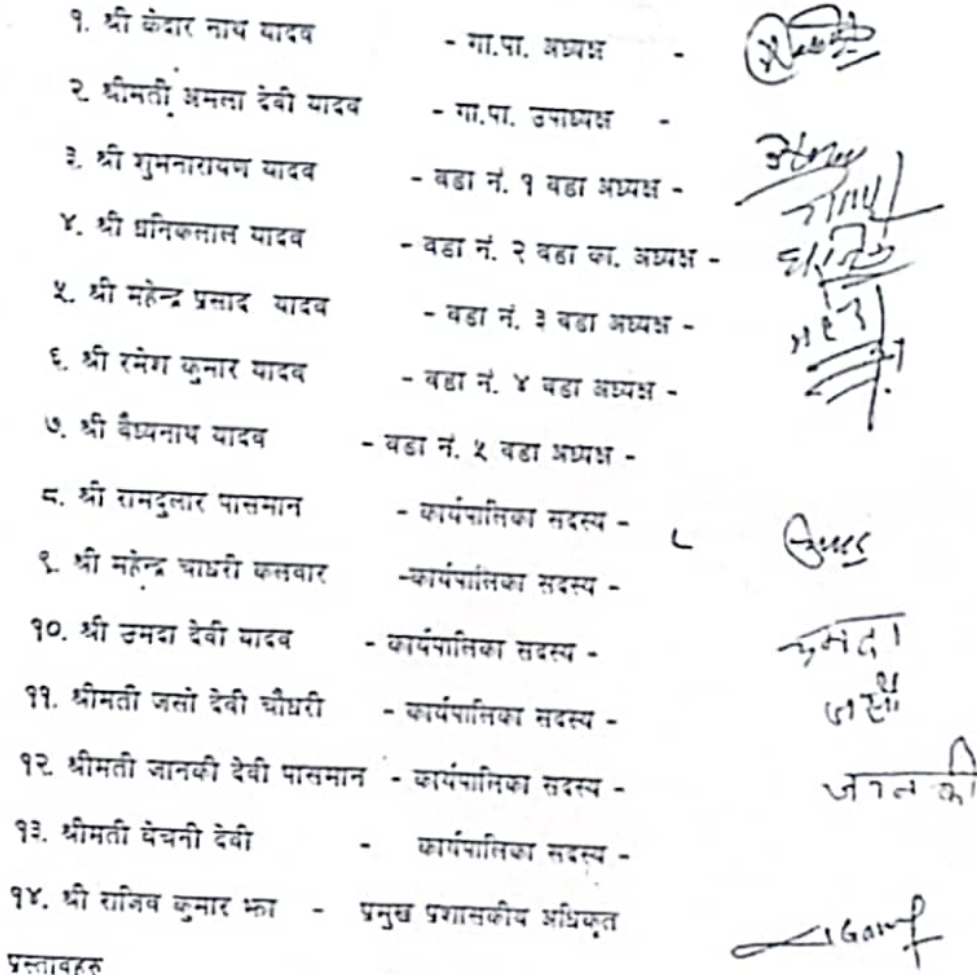 १. श्री केदार नाथ यादव - गा.पा. अध्यक्ष -
२. श्रीमती अमला देवी यादव - गा.पा. उपाध्यक्ष -
३. श्री शुभनारायण यादव - वडा नं. १ वडा अध्यक्ष -
४. श्री धनिकलाल यादव - वडा नं. २ वडा का. अध्यक्ष - धनिक
५. श्री महेन्द्र प्रसाद यादव - वडा नं. ३ वडा अध्यक्ष -
६. श्री रमेश कुमार यादव - वडा नं. ४ वडा अध्यक्ष -
७. श्री वैध्यनाथ यादव - वडा नं. ५ वडा अध्यक्ष -
८. श्री रामदुलार पासमान - कार्यपालिका सदस्य -
९. श्री महेन्द्र चाधरी कलवार -कार्यपालिका सदस्य -
१०. श्री उमदा देवी यादव - कार्यपालिका सदस्य - उमदा
११. श्रीमती जसो देवी चौधरी - कार्यपालिका सदस्य - जसो
१२. श्रीमती जानकी देवी पासमान - कार्यपालिका सदस्य - जानकी
१३. श्रीमती वेचनी देवी - कार्यपालिका सदस्य -
१४. श्री राजिव कुमार झा - प्रमुख प्रशासकीय अधिकृत
प्रस्तावहरु